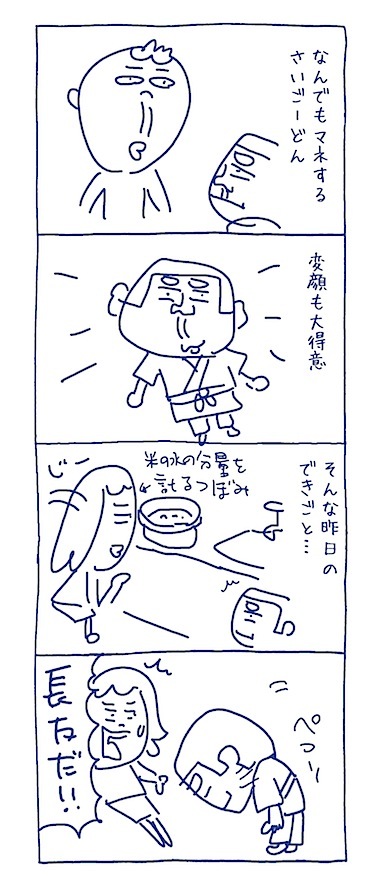 なんでもマネする
さいごーどん
変顔も大得意
そんな昨日の
できごと…
米の水の分量を
計るつぼみ
じー
ぺこり
長友だ!!